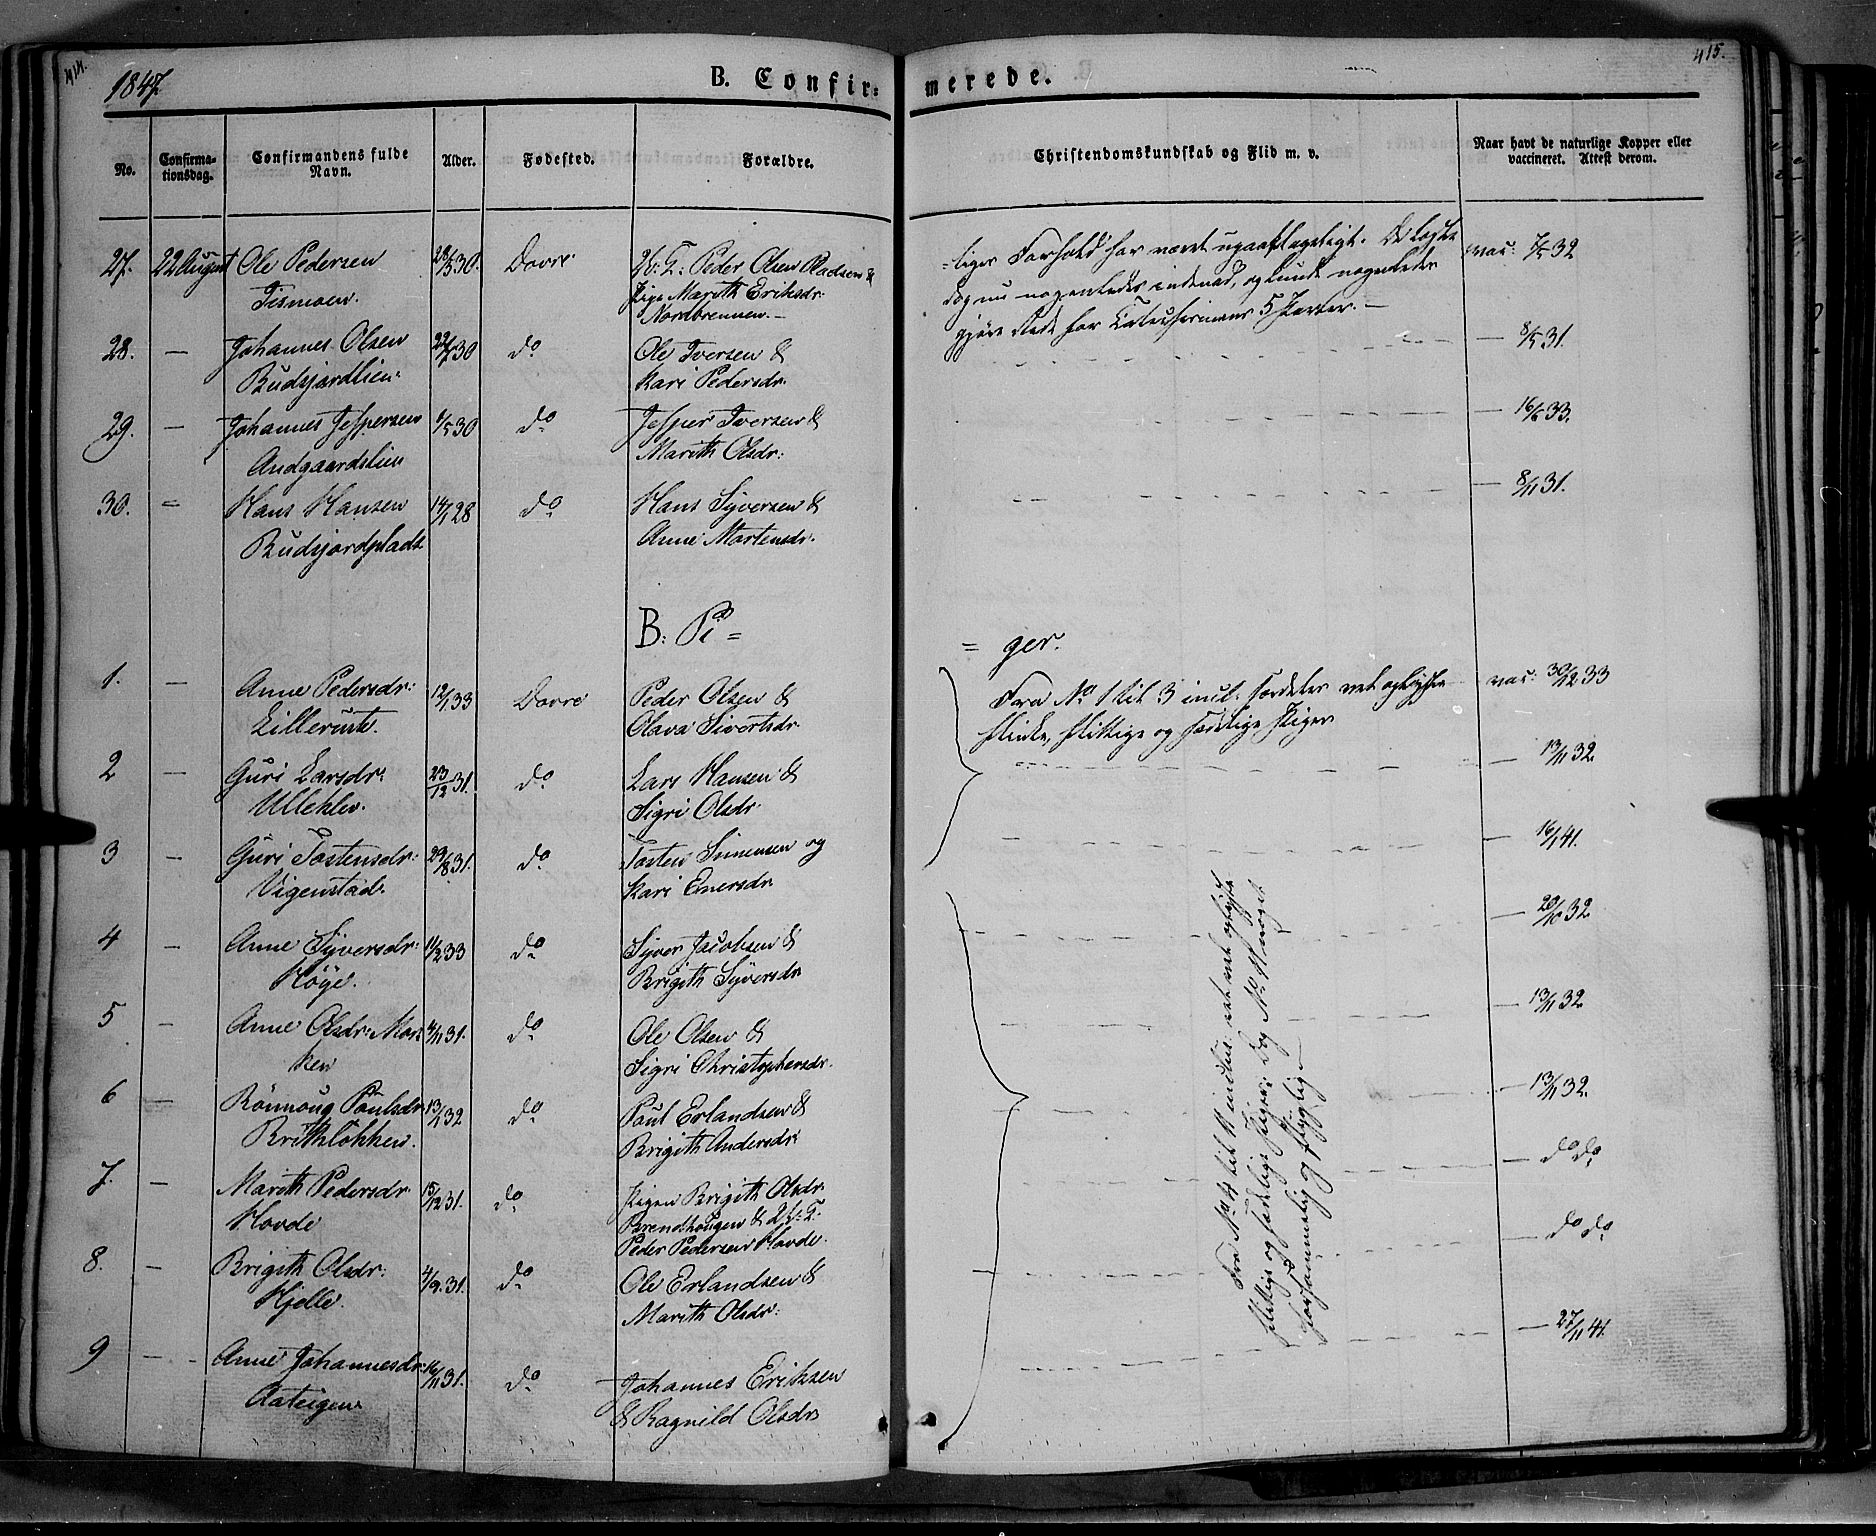 414.
1847.
B. Confir-
merede.
415.
No.
Confirma-
tionsdag.
Confirmandens fulde
Navn.
Alder.
Fødested.
Forældre.
Christendomskundskab og Flid m. v.
Naar havt de naturlige Kopper eller
vaccineret. Attest derom.
27. 22 August Ole Pedersen 30. Dovre Peder Olsen &
Tismoen. Pige Marith Eriksdr:
Nordbrennen.
=liges Forhold har været upaaklageligt. De læste
dog nu nogenledes indenad, og kunde nogenledes
gjøre Rede for Catechismens 5 Parter. —
vac: 7/5 32
28. — Johannes Olsen 30 do Ole Iversen & — 8/5 31.
Budsjordlien. Kari Pedersdr.
29. — Johannes Jespersen 30 do Jesper Iversen & — 16/6 33.
Andgaardslien Marith Olsdr:
30. = Hans Hansen 14/1 28 do Hans Syversen & — 8/11 31.
Budsjordplads Anne Mortensdr.
B: Pi =
= ger.
1. — Anne Pedersdr: 12/1 33 Dovre Peder Olsen & vac: 30/12 33
Lillerusta. Olava Sivertsdr
Fra No 1 til 3 incl: særdeles vel oplyste
flinke, flittige og sædelige Piger
2 — Guri Larsdr: 23/12 31. do Lars Hansen & — 13/11 32.
Ulleklev. Sigri Olsdr.
3 — Guri Tostensdr: 29/8 31. do Tosten Simensen og — 16/1 41.
Vigenstad. Kari Enersdr.
4 — Anne Syversdr: 11/2 33 do Syver Jacobsen & — 20/10 32
Høye. Brigith Syversdr
5 — Anne Olsdr: Mor= 4/11 31. do Ole Olsen & — 13/11 32
ken Sigri Christophersdr.
6 — Rønnoug Paulsdr 13/1 32 do Paul Erlandsen & — 13/11 32.
Brikkløkken. Brigith Andersdr:
7. — Marith Pedersdr. 15/12 31. do Pigen Brigith Olsdr. — do do
Hovde Brendhougen &
Peder Pedersen Hovde.
8. — Brigith Olsdr: 4/9 31. do Ole Erlandsen & — do do
Hjelle. Marith Olsdr:
9 — Anne Johannesdr: 16/11 31. do Johannes Eriksen — 27/11 41.
Aateigen & Ragnild Olsdr
Fra No 4 til 11 inclus: vel oplyste
flittige og sædelige Piger; dog No 11 noget
forsømmelig og